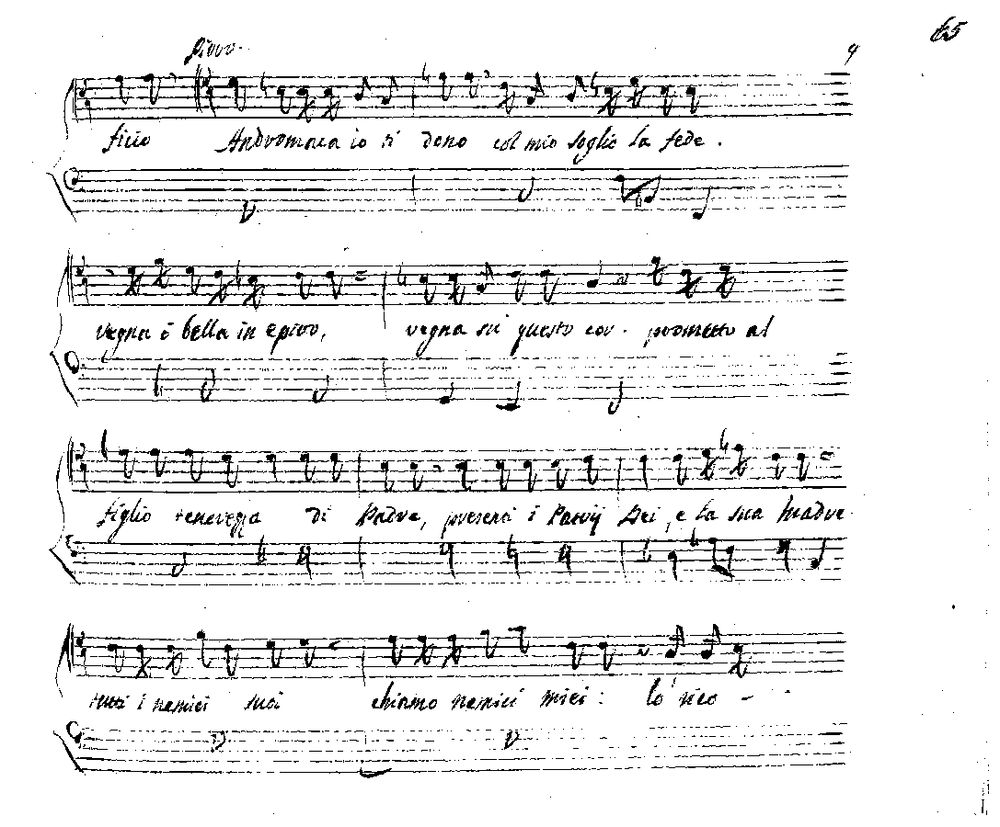 65
9
Pirro.
ficio Andromaca io ti dono col mio soglio la fede.
regna ò bella in epiro, regna sù questo cor. prometto al
figlio tenerezza di Padre, presenti i Patrij Dei, e la sua Madre
tutti i nemici suoi chiamo nemici miei: lo rico -